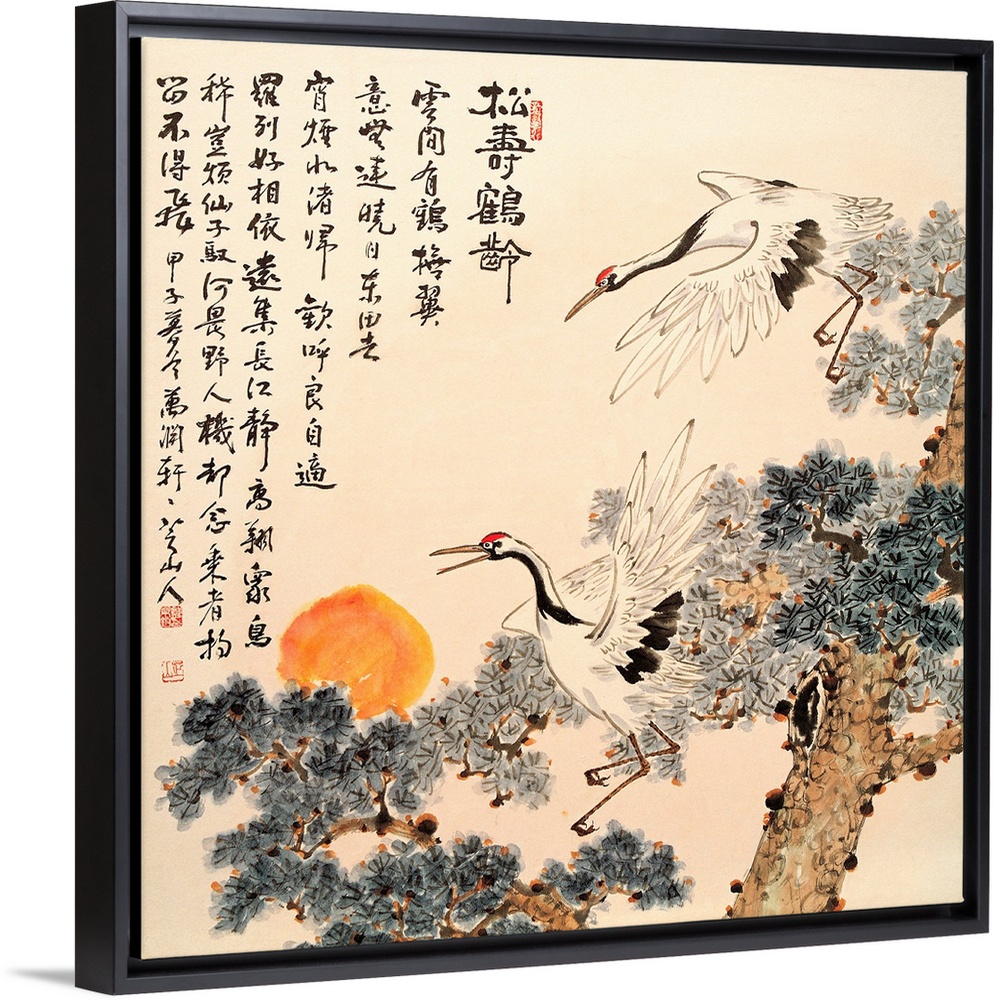 松壽鶴齡
雲間有鶴擔翼
意無違曉日東田去
宵煙水渚歸歡呼良自適
羅列好相依遠集長江靜高翔眾鳥
稀豈煩仙子馭何畏野人機却念乘者拘
留不得飛甲子暮冬萬澗軒山人